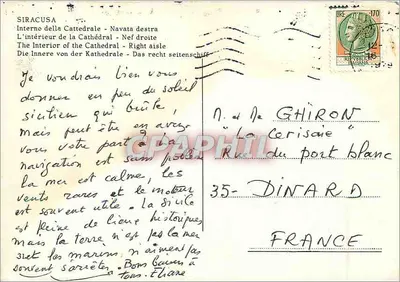 SIRACUSA
Interno della Cattedrale - Navata destra
L'intérieur de la Cathédral - Nef droite
The Interior of the Cathedral - Right aisle
Die Innere von der Kathedrale - Das recht seitenschiff
LIRE 170
1979
Je voudrais bien vous
donner en peu du soleil
sicilien qui brûle,
mais peut être en avez
vous votre part. La
navigation est sans
la mer est calme, les
vents rares et le moteur
est souvent utile. La Sicile
est pleine de lieux historiques
mais la terre n'est pas la mer
et les marins n'aiment pas
souvent s'arrêter. Bons baisers à
tous. Eliane
M. et Me GHIRON
"La Cerisaie"
Rue du port blanc
35- DINARD
FRANCE
CPAPHIL